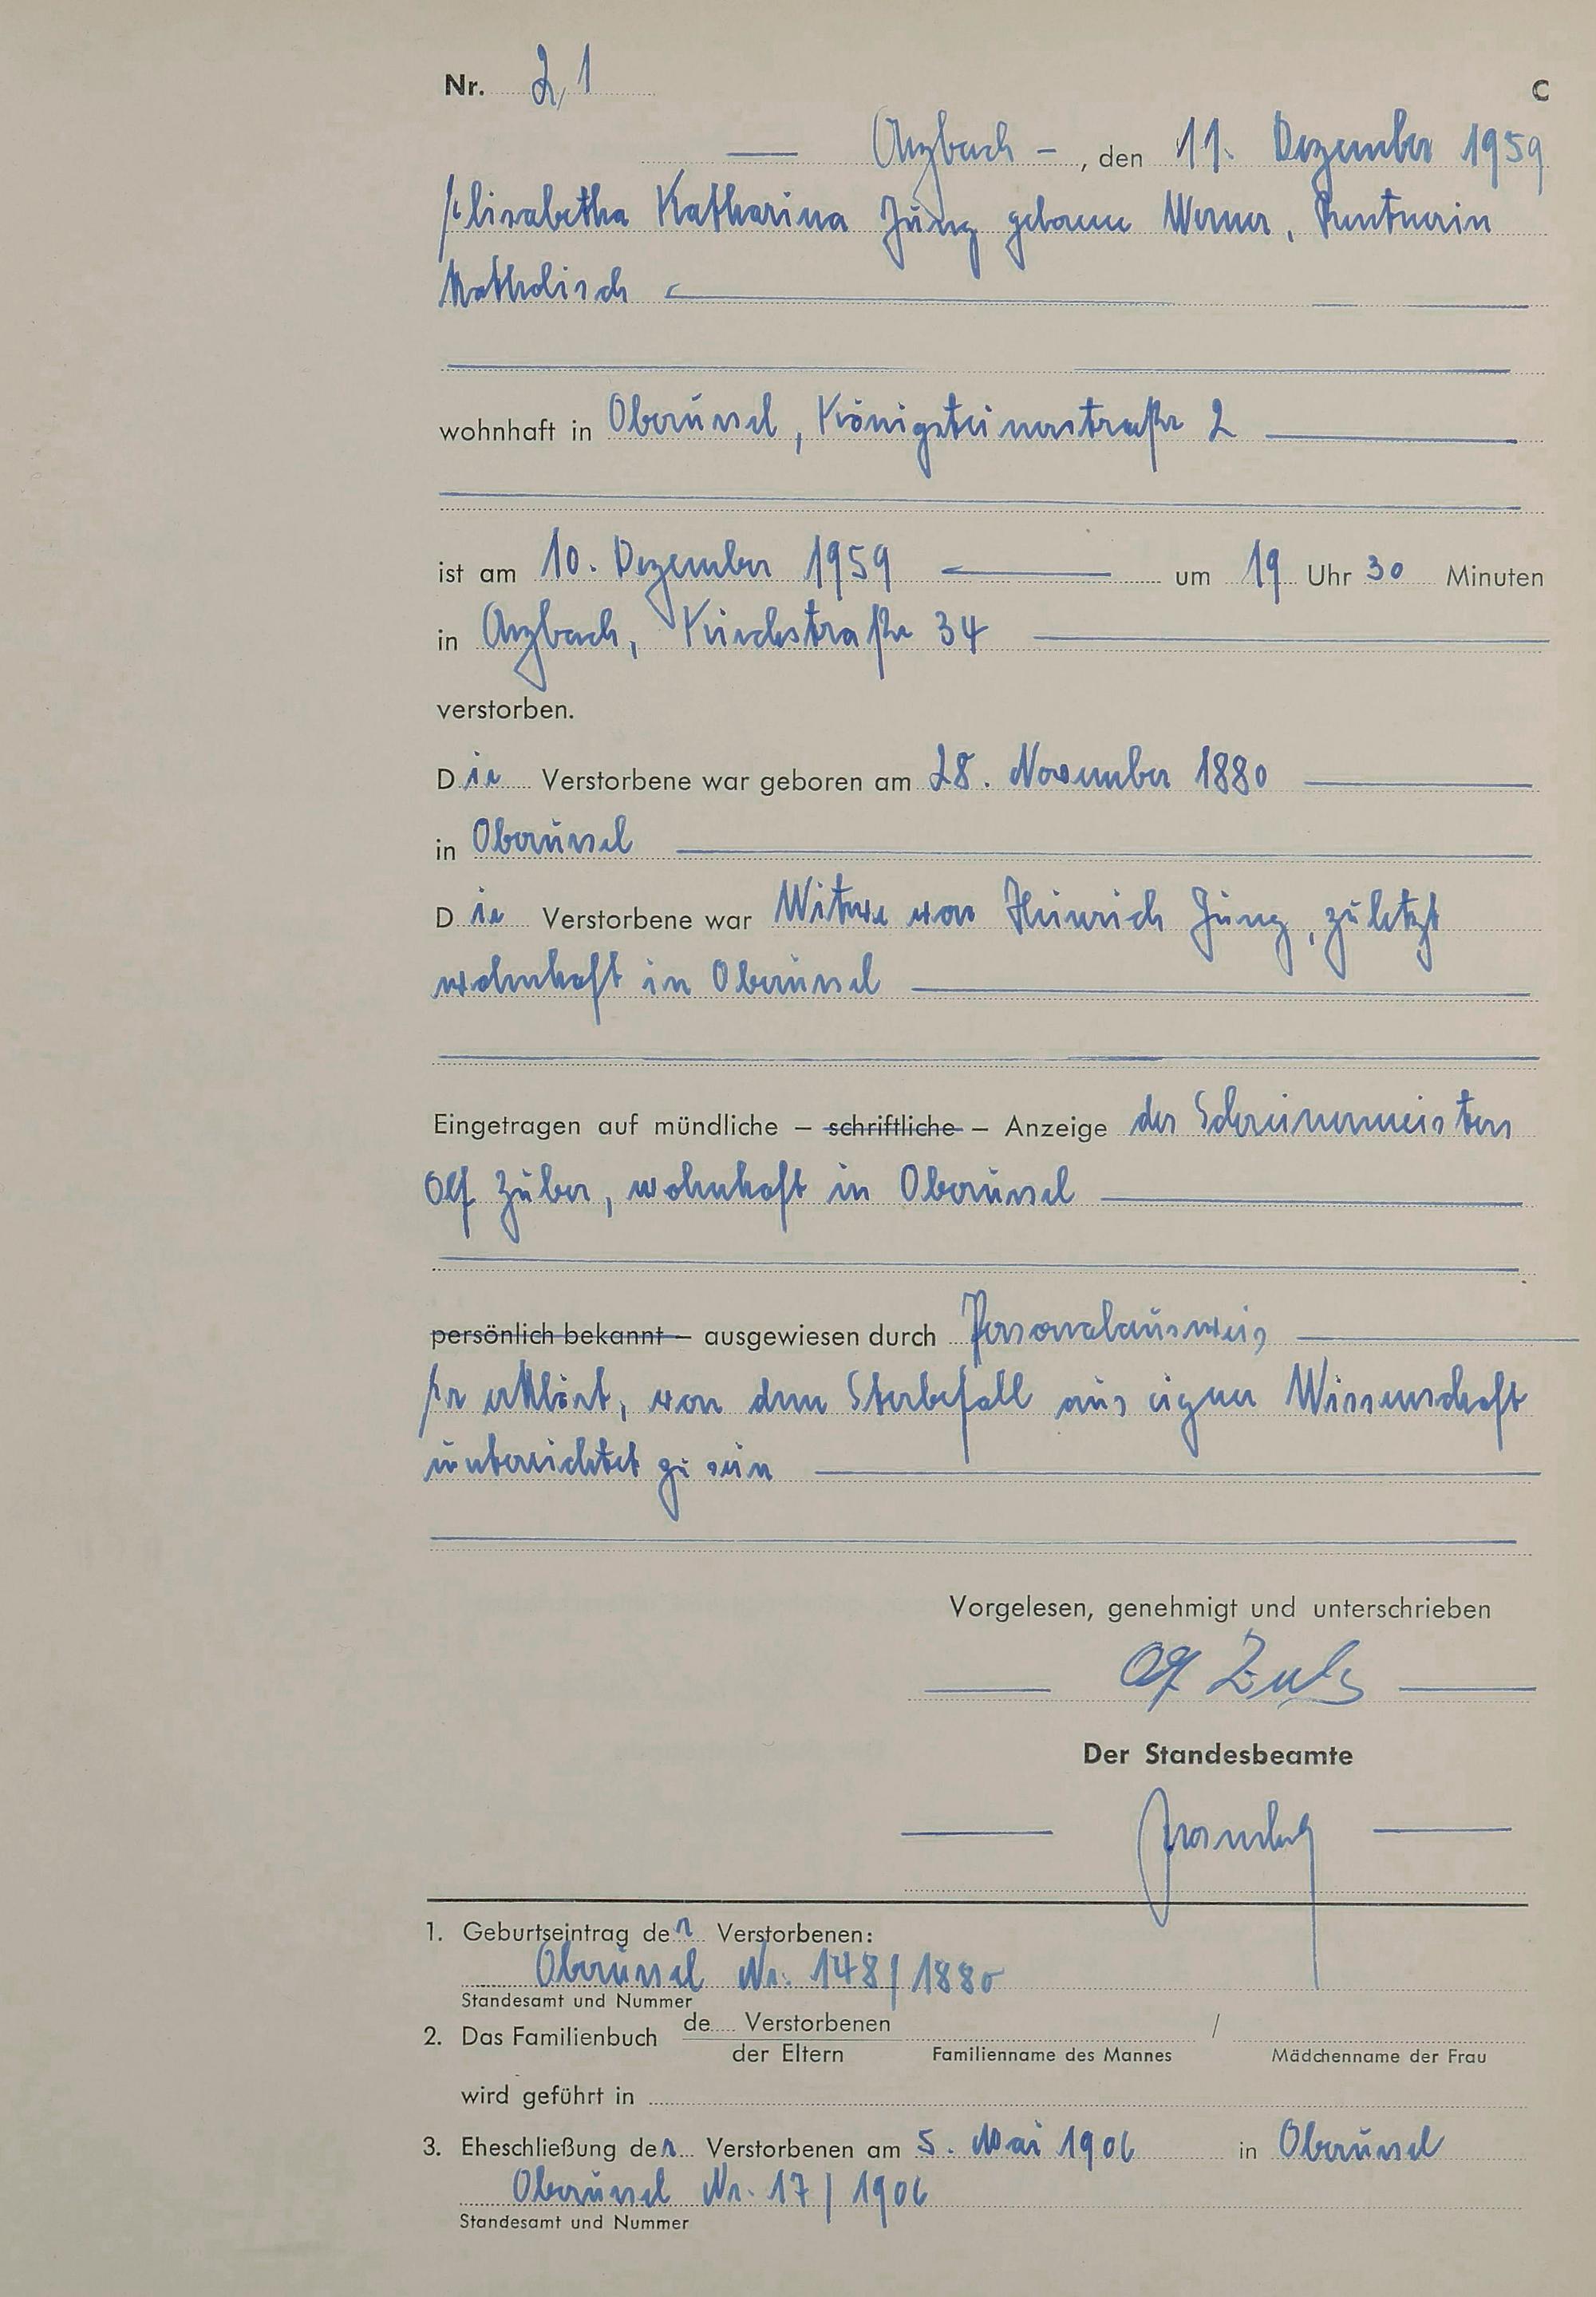 Nr. 21
C
Arzbach, den 11. Dezember 1959
Elisabetha Katharina Jung geborene Werner, Rentnerin
Katholisch
wohnhaft in Oberursel, Königsteinerstraße 2
ist am 10. Dezember 1959 um 19 Uhr 30 Minuten
in Arzbach, Kirchstraße 34
verstorben.
Die Verstorbene war geboren am 28. November 1880
in Oberursel
Die Verstorbene war Witwe von Heinrich Jung, zuletzt
wohnhaft in Oberursel
Eingetragen auf mündliche – schriftliche – Anzeige des Schreinermeisters
Olf Zuber, wohnhaft in Oberursel
persönlich bekannt – ausgewiesen durch Personalausweis
Er erklärt, von dem Sterbefall aus eigner Wissenschaft
unterrichtet zu sein
Vorgelesen, genehmigt und unterschrieben
Olf Zuber
Der Standesbeamte
1. Geburtseintrag der Verstorbenen:
Oberursel Nr. 148/1880
Standesamt und Nummer
2. Das Familienbuch de Verstorbenen /
der Eltern Familienname des Mannes Mädchenname der Frau
wird geführt in
3. Eheschließung der Verstorbenen am 5. Mai 1906 in Oberursel
Oberursel Nr. 17/1906
Standesamt und Nummer